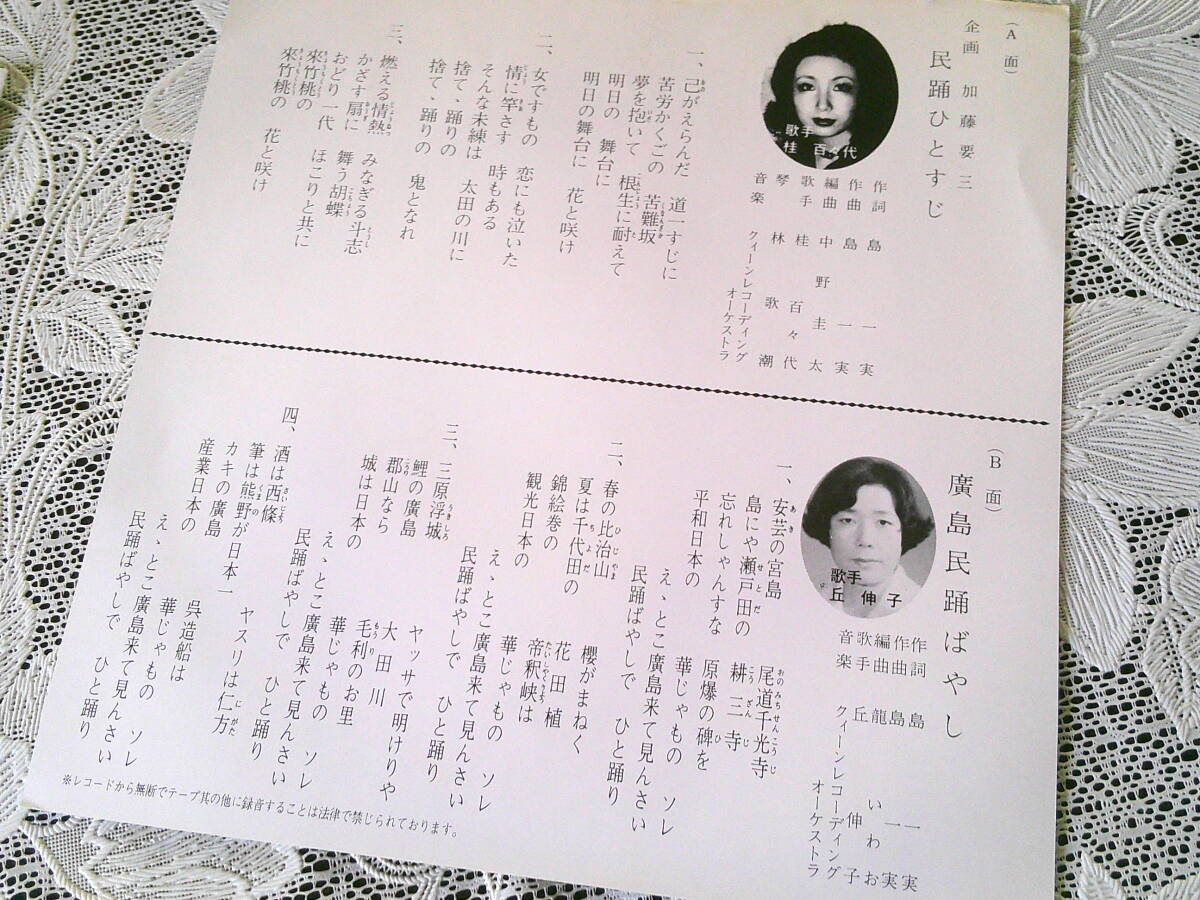 （A面）
企画 加藤要三
民踊ひとすじ
歌手
桂 百々代
作詞 島 一実
作曲 島 一実
編曲 中野圭太
歌手 桂 百々代
琴 林 歌潮
音楽 クィーンレコーディング
オーケストラ
一、己がえらんだ 道一すじに
苦労かくごの 苦難坂
夢を抱いて 根生に耐えて
明日の 舞台に
明日の舞台に 花と咲け
二、女ですもの 恋にも泣いた
情に竿さす 時もある
そんな未練は 太田の川に
捨てゝ踊りの
捨てゝ踊りの 鬼となれ
三、燃える情熱 みなぎる斗志
かざす扇に 舞う胡蝶
おどり一代 ほこりと共に
來竹桃の
來竹桃の 花と咲け
（B面）
廣島民踊ばやし
歌手
丘 伸子
作詞 島 一実
作曲 島 一実
編曲 龍 いわお
歌手 丘 伸子
音楽 クィーンレコーディング
オーケストラ
一、安芸の宮島 尾道千光寺
島にや瀬戸田の 耕三寺
忘れしゃんすな 原爆の碑を
平和日本の 華じゃもの ソレ
えゝとこ廣島来て見んさい
民踊ばやしで ひと踊り
二、春の比治山 櫻がまねく
夏は千代田の 花田植
錦絵巻の 帝釈峡は
観光日本の 華じゃもの ソレ
えゝとこ廣島来て見んさい
民踊ばやしで ひと踊り
三、三原浮城 ヤッサで明けりや
鯉の廣島 大田川
郡山なら 毛利のお里
城は日本の 華じゃもの ソレ
えゝとこ廣島来て見んさい
民踊ばやしで ひと踊り
四、酒は西條 ヤスリは仁方
筆は熊野が日本一
カキの廣島 呉造船は
産業日本の 華じゃもの ソレ
えゝとこ廣島来て見んさい
民踊ばやしで ひと踊り
※レコードから無断でテープ其の他に録音することは法律で禁じられております。